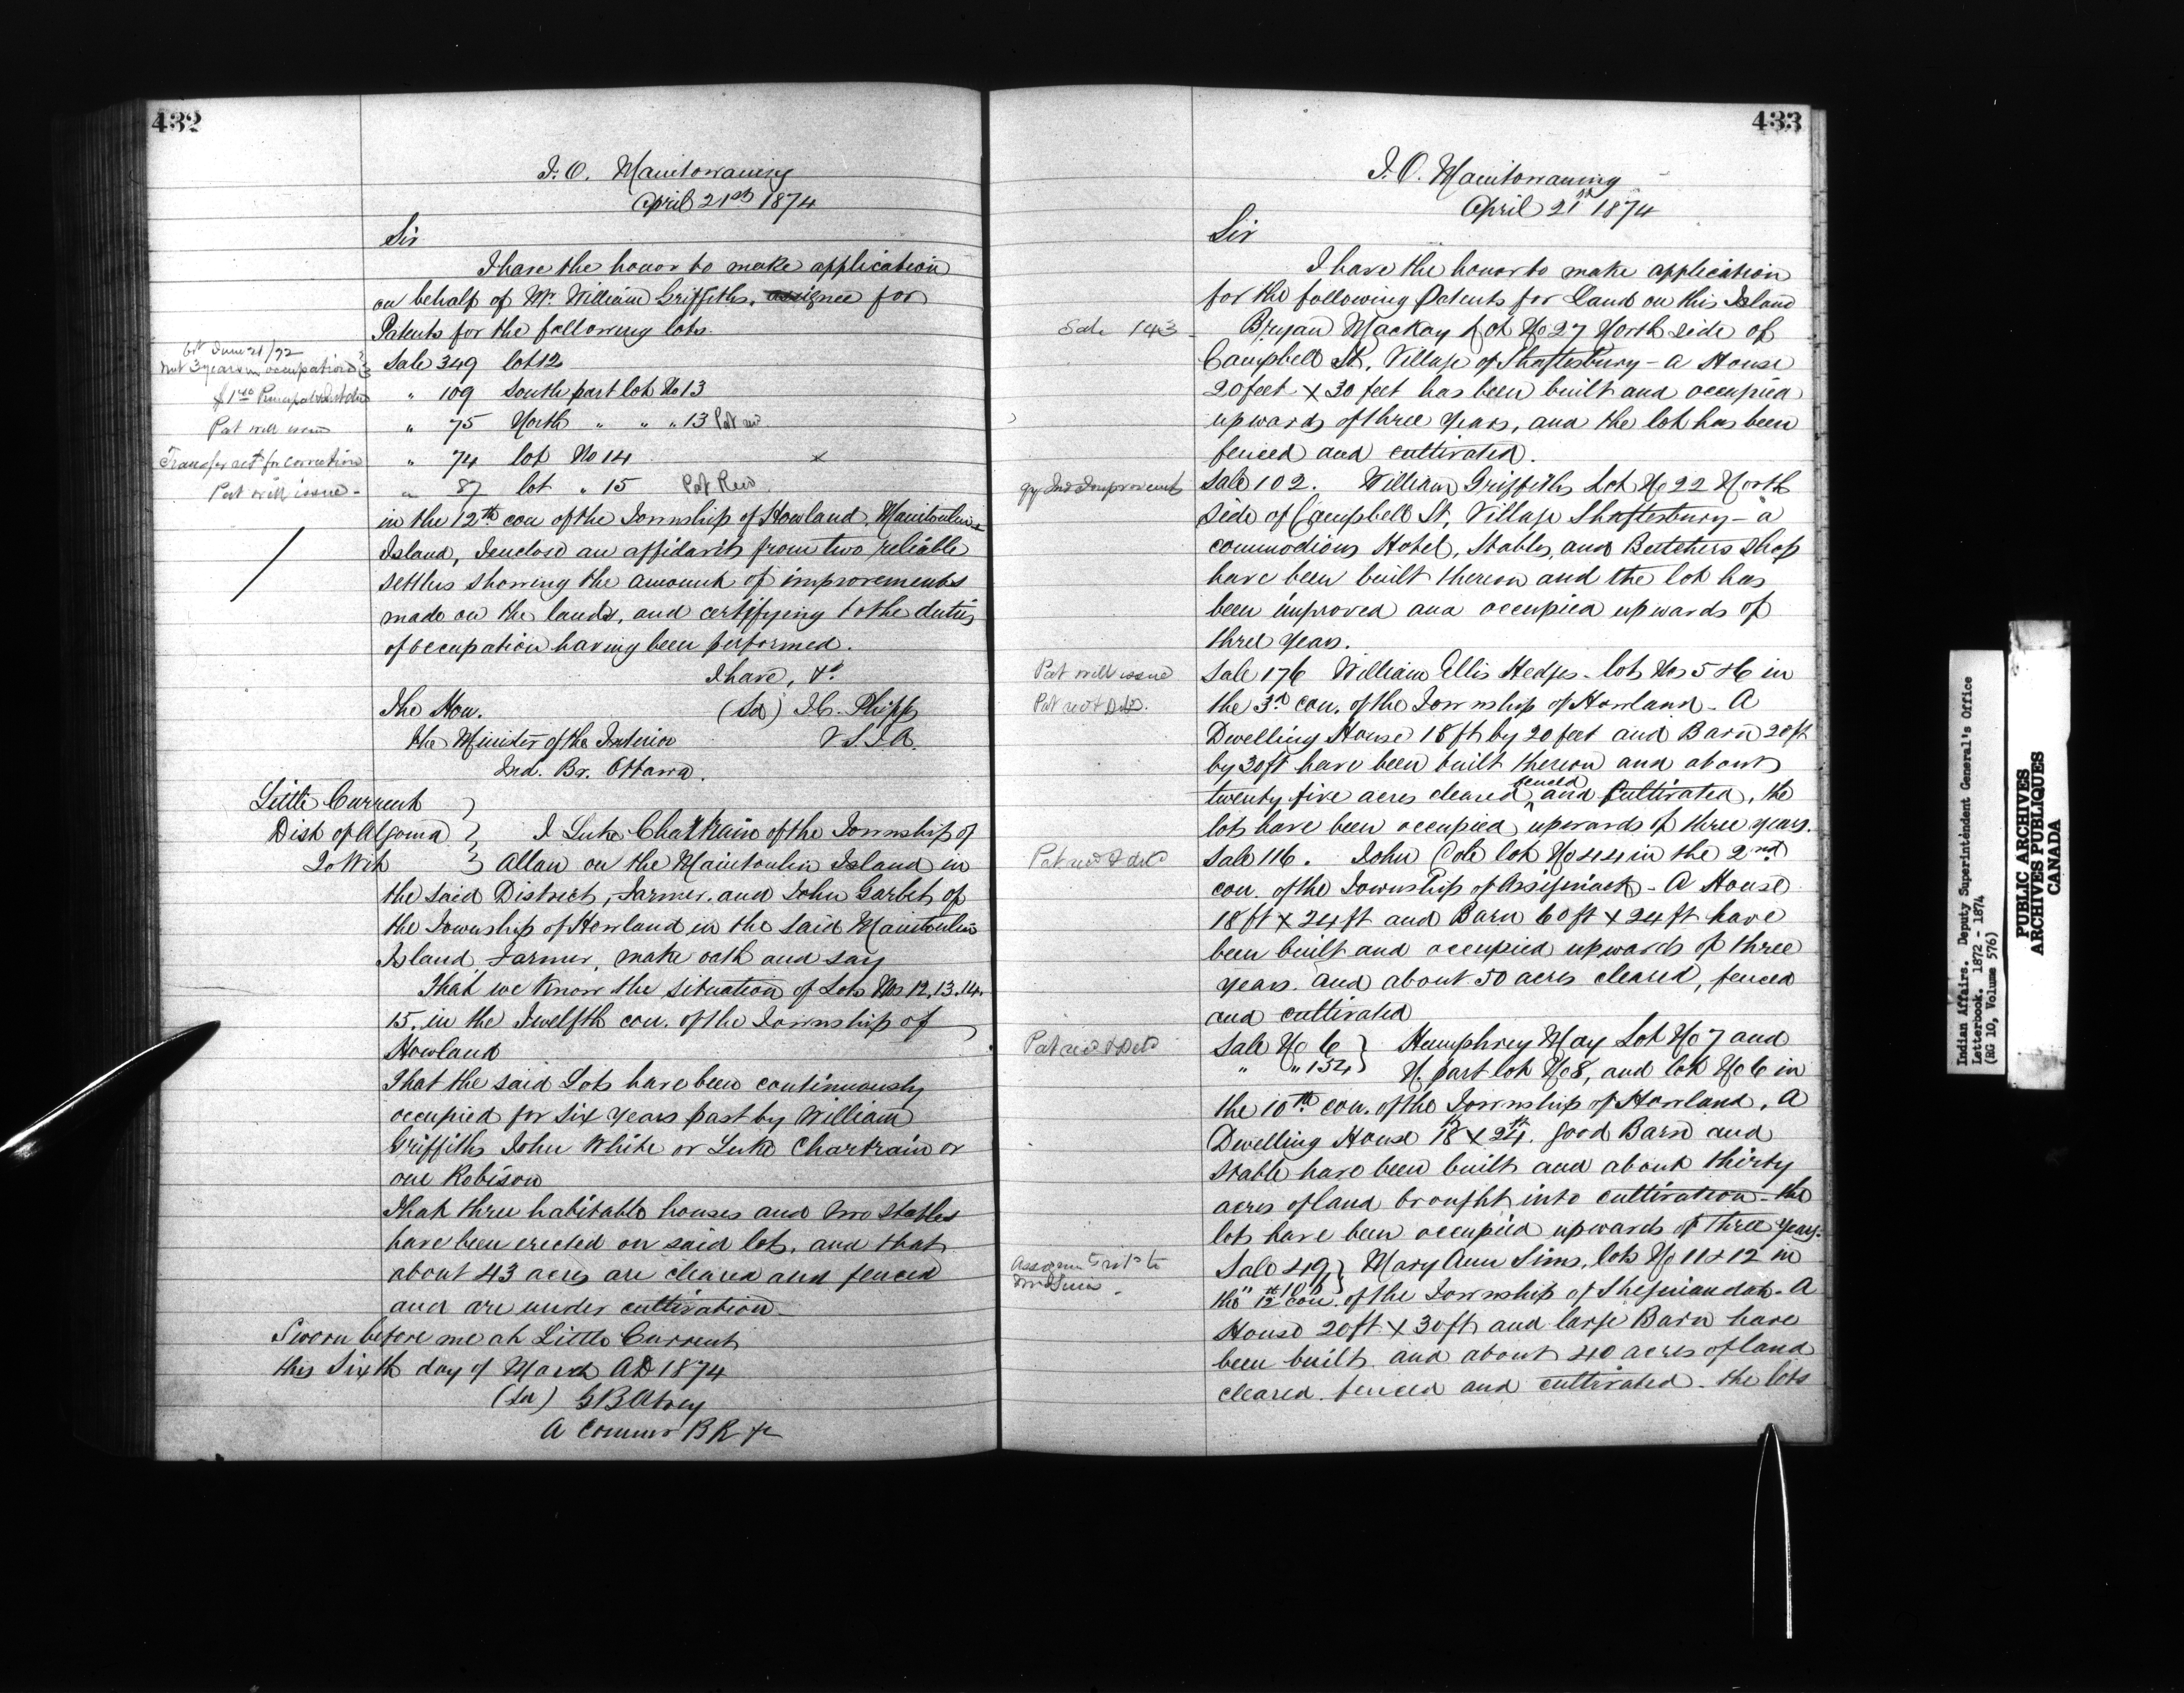 432
I. O. Manitowaning
April 21st 1874
Sir
I have the honor to make application
on behalf of Mr. William Griffiths, assignee for
Patents for the following lots.
Sale 349 lot 12
not 3 years in occupation
" 109 South part lot No 13
" 75 North " " " 13 Pat rec
Pat will issue
" 74 lot No 14 x
Transfer retd for correction
" 87 lot " 15 Pat Recd
Pat will issue -
in the 12th con of the Township of Howland, Manitoulin
Island, I enclose an affidavit from two reliable
settlers showing the amount of improvements
made on the lands, and certifying to the duties
of occupation having been performed.
I have, &c
The Hon. (Sd) J.C. Phipps
the Minister of the Interior V S I A.
Ind. Br. Ottawa.
Little Current }
Dist of Algoma } I Luke Chartrain of the Township of
To Wit } Allan on the Manitoulin Island in
the said District, Farmer, and John Garbet of
the Township of Howland in the said Manitoulin
Island, Farmer, make oath and say
That we know the situation of Lots Nos 12, 13. 14.
15. in the Twelfth con. of the Township of
Howland
That the said Lots have been continuously
occupied for six years past by William
Griffiths John White or Luke Chartrain or
one Robison
That three habitable houses and two stables
have been erected on said lots, and that
about 43 acres are cleared and fenced
and are under cultivation
Sworn before me at Little Current
this Sixth day of March AD 1874
(Sd) G B Abrey
A Commr B R &c
433
I. O. Manitowaning
April 21st 1874
Sir
I have the honor to make application
for the following Patents for Land on this Island
Sale 143 - Bryan Mackay Lot No 27 North side of
Campbell St, Village of Shaftesbury - a House
20 feet x 30 feet has been built and occupied
upwards of three years, and the lot has been
fenced and cultivated.
Sale 102. William Griffiths Lot No 22 North
side of Campbell St, Village Shaftesbury - a
commodious Hotel, Stables, and Butchers shop
have been built thereon and the lot has
been improved and occupied upwards of
three years.
Pat will issue
Sale 176 William Ellis Hedges - lots Nos 5 & 6 in
Pat recd & Deld.
the 3rd con. of the Township of Howland - A
Dwelling House 18 ft by 20 feet and Barn 20 ft
by 30 ft have been built thereon and about
twenty five acres cleared fenced and Cultivated, the
lots have been occupied upwards of three years.
Pat recd & deld
Sale 116. John Cole lot No 44 in the 2nd
con. of the Township of Assiginack - A House
18 ft x 24 ft and Barn 60 ft x 24 ft have
been built and occupied upwards of three
years. and about 50 acres cleared, fenced
and cultivated
Pat recd & Deld
Sale No 6 } Humphrey May Lot No 7 and
" " 154 } N. part lot No 8, and lot No 6 in
the 10th con. of the Township of Howland. A
Dwelling House 18ft x 24ft. good Barn and
stable have been built and about thirty
acres of land brought into cultivation - the
lots have been occupied upwards of three years.
Sale 49 } Mary Ann Sims, lots No 11 & 12 in
the 12 con. of the Township of Sheguiandah - A
House 20 ft x 30 ft and large Barn have
been built and about 40 acres of land
cleared. fenced and cultivated - the lots
Indian Affairs. Deputy Superintendent General's Office
Letterbook. 1872 - 1874
(RG 10, Volume 576)
PUBLIC ARCHIVES
ARCHIVES PUBLIQUES
CANADA